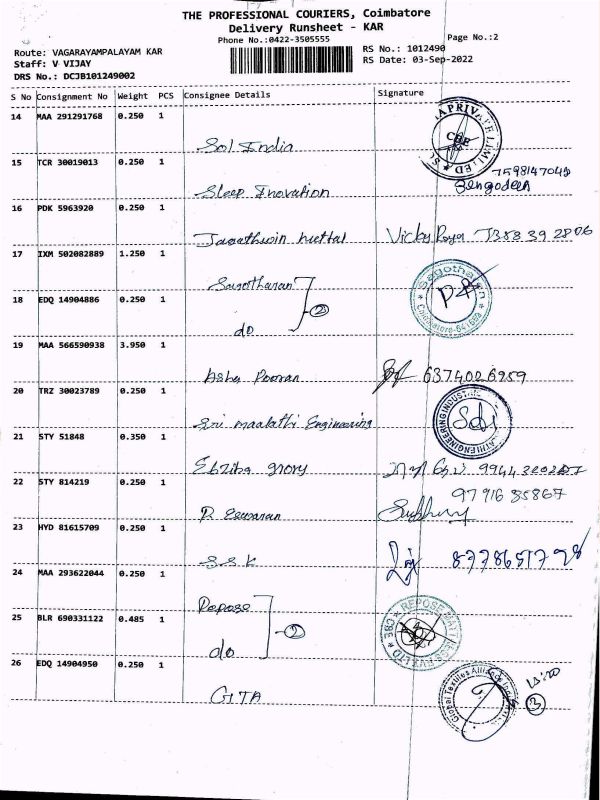 THE PROFESSIONAL COURIERS, Coimbatore
Delivery Runsheet - KAR
Phone No.:0422-3505555
Page No.:2
Route: VAGARAYAMPALAYAM KAR
RS No.: 1012490
Staff: V VIJAY
RS Date: 03-Sep-2022
DRS No.: DCJB101249002
S No Consignment No Weight PCS Consignee Details Signature
14 MAA 291291768 0.250 1
Sol India
CBE
15 TCR 30019013 0.250 1
Sleep Inovation
16 PDK 5963920 0.250 1
Vicky
17 IXM 502082889 1.250 1
Sagotharan
2
Sagotharan
Coimbatore-641659
18 EDQ 14904886 0.250 1
do
19 MAA 566590938 3.950 1
6374026959
20 TRZ 30023789 0.250 1
Sri maalathi Engineering
21 STY 51848 0.350 1
22 STY 814219 0.250 1
97916 35867
23 HYD 81615709 0.250 1
S.S.K
24 MAA 293622044 0.250 1
Repose
2
25 BLR 690331122 0.485 1
do
26 EDQ 14904950 0.250 1
GITA
3